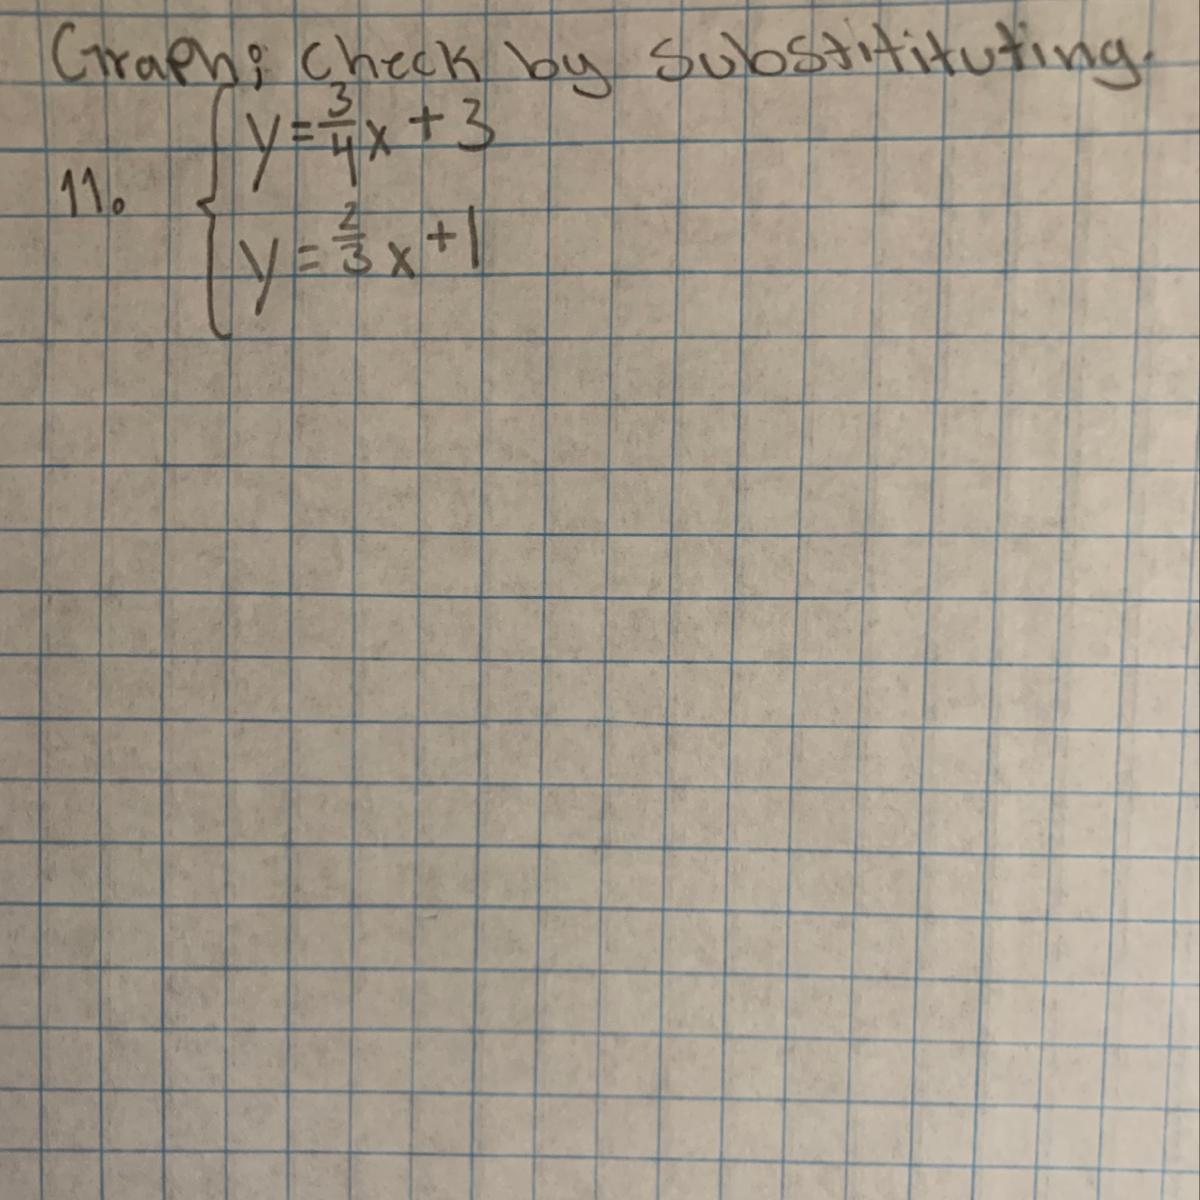 Graph; check by Substitituting.
y = 3/4 x + 3
11.
y = 2/3 x + 1